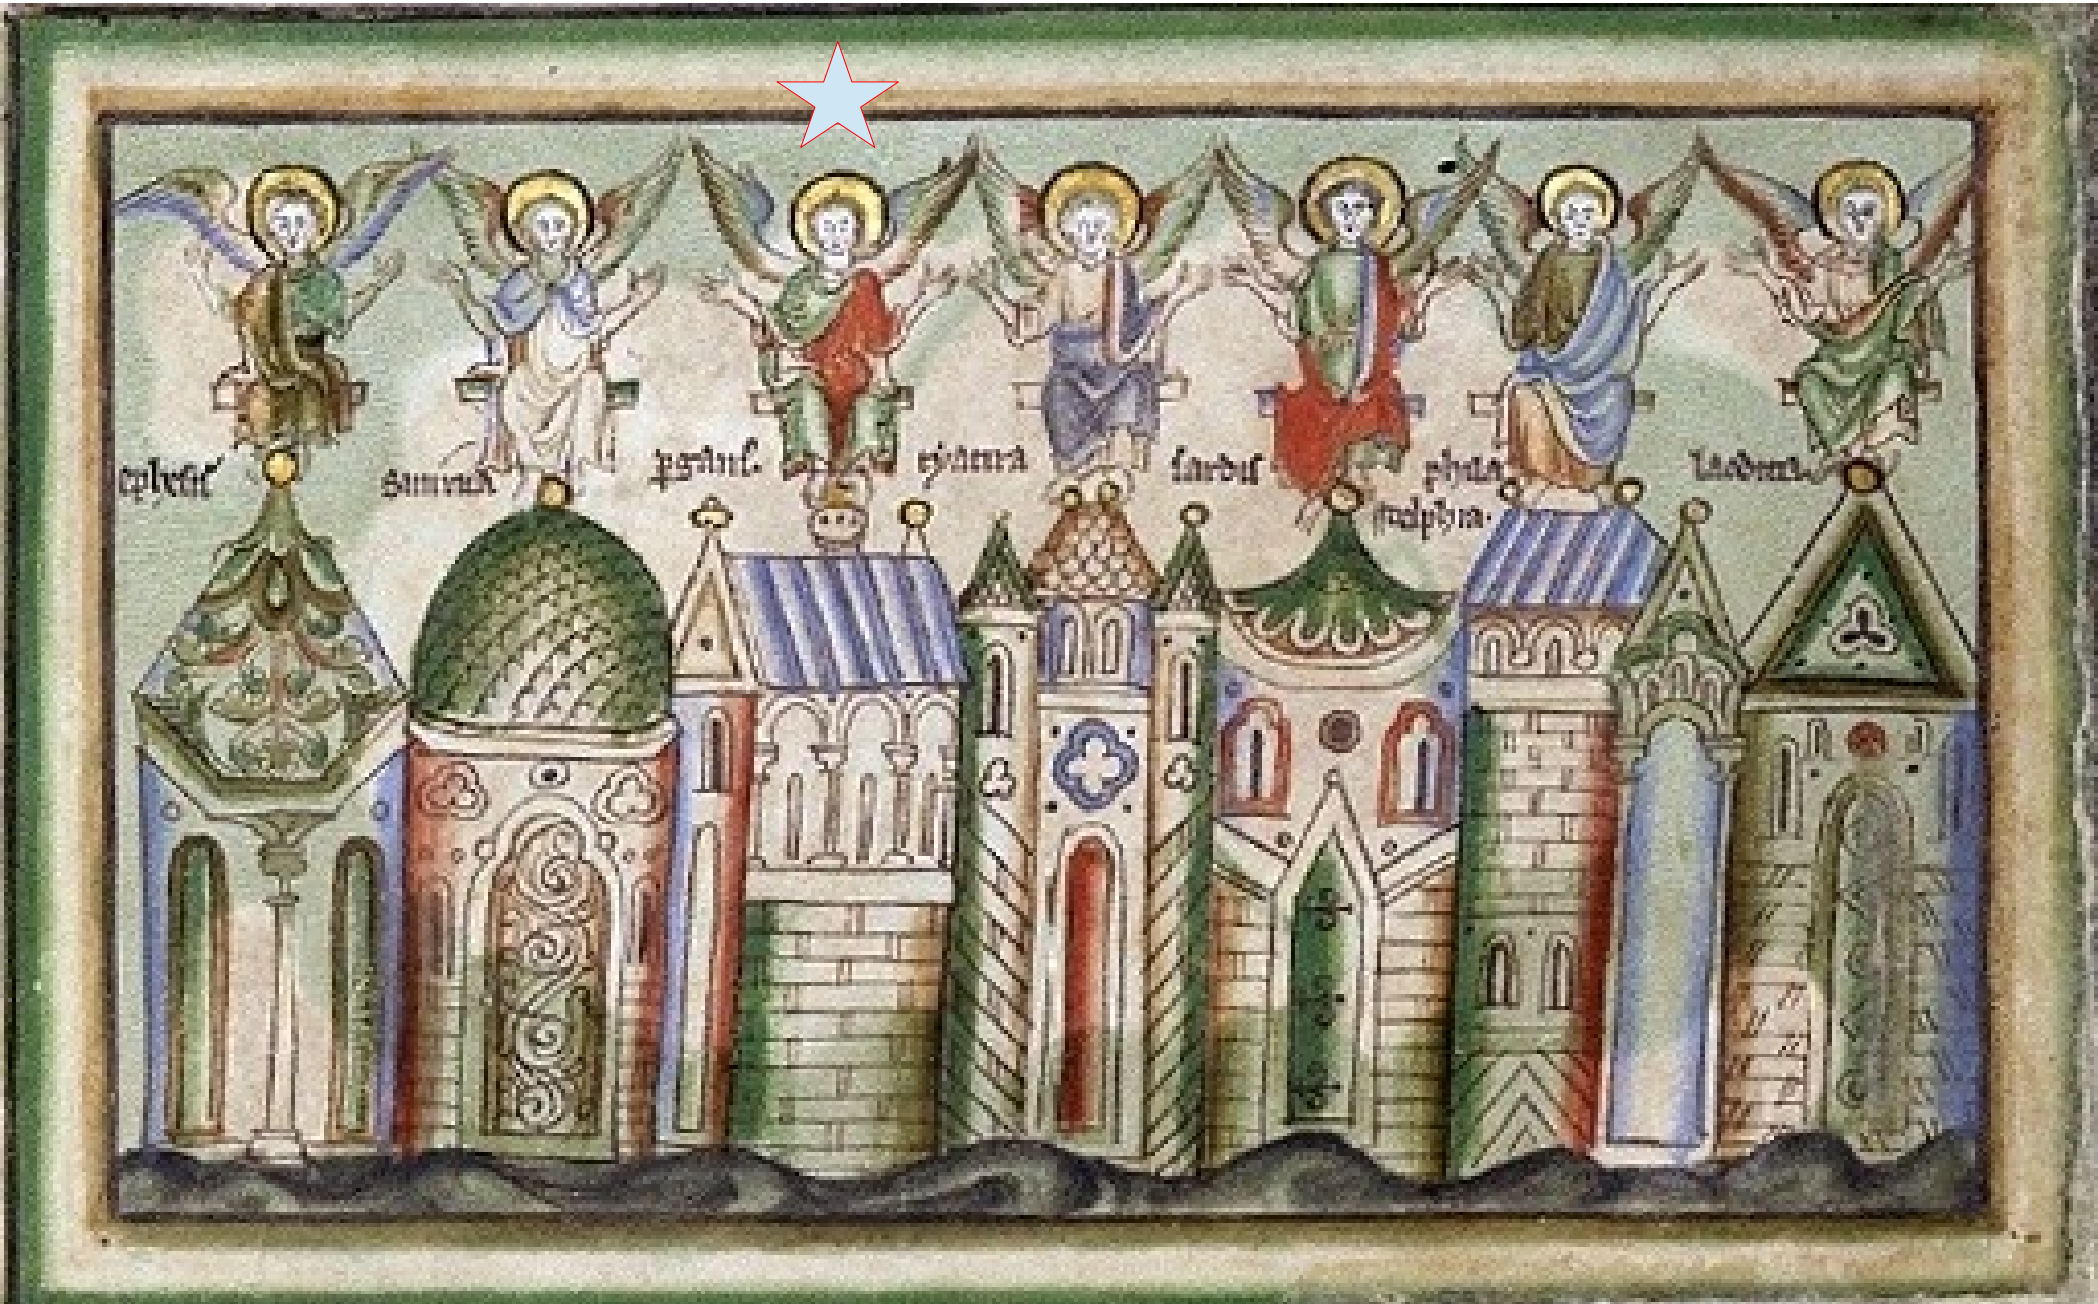 ephesus
smirna
pergamus
tyatira
sardis
phila
delphia.
laodicia.